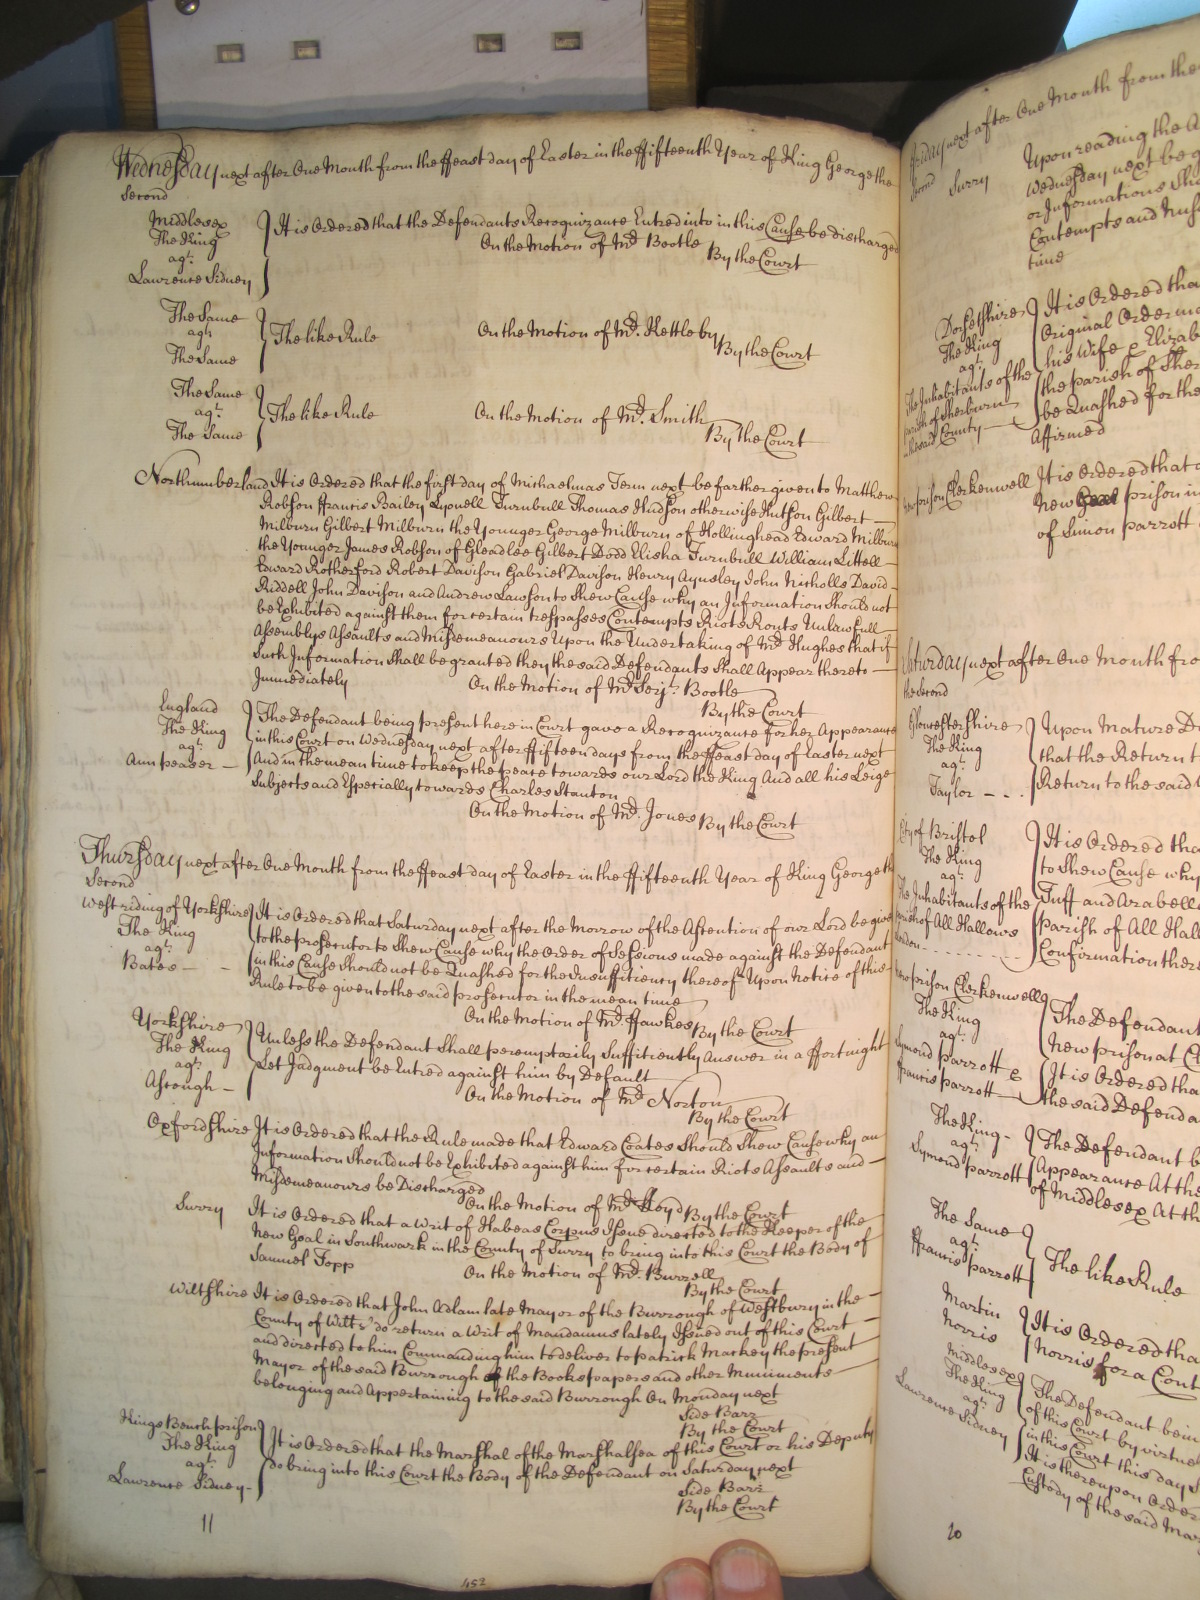 Wednesday next after One Month from the ffeast day of Easter in the ffifteenth Year of King George the
Second
Middlesex
The King
agt.
Lawrence Sidney
It is Ordered that the Defendants Recognizance Entred into in this Cause be discharged
On the Motion of Mr. Bootle
By the Court
The Same
agt.
The Same
The like Rule
On the Motion of Mr. Kettleby
By the Court
The Same
agt.
The Same
The like Rule
On the Motion of Mr. Smith
By the Court
Northumberland It is Ordered that the first day of Michaelmas Term next be farther given to Matthew
Robson ffrancis Bailey Lyonell Turnbull Thomas Hudson otherwise Hutson Gilbert
Milburn Gilbert Milburn the Younger George Milburn of Hollinghead Edward Milburn
the Younger James Robson of Gleadlee Gilbert Dodd Elisha Turnbull William Littell
Edward Rotherford Robert Davison Gabriel Davison Henry Aynsley John Nicholls David
Riddell John Davison and Andrew Lawson to Shew Cause why an Information Should not
be Exhibited against them for certain trespasses Contempts Riots Routs Unlawfull
Assemblys Assaults and Misdemeanours Upon the Undertaking of Mr. Hughes that if
Such Information Shall be granted they the said Defendants Shall Appear thereto
Immediately
On the Motion of Mr. Serjt. Bootle
By the Court
England
The King
agt.
Ann peaser
The Defendant being present here in Court gave a Recognizance for her Appearance
in this Court on Wednesday next after ffifteen days from the ffeast day of Easter next
And in the mean time to keep the peace towards our Lord the King And all his Leige
Subjects and Especially towards Charles Stanton
On the Motion of Mr. Jones
By the Court
Thursday next after One Month from the ffeast day of Easter in the ffifteenth Year of King George th
Second
West riding of Yorkshire
The King
agt.
Bates
It is Ordered that Saturday next after the Morrow of the Ascention of our Lord be give
to the prosecutor to Shew Cause why the Order of Sessions made against the Defendant
in this Cause Should not be Quashed for the Insufficiency thereof Upon Notice of this
Rule to be given to the said prosecutor in the mean time
On the Motion of Mr. Hawkes
By the Court
Yorkshire
The King
agt.
Ascough
Unless the Defendant Shall peremptorily Sufficiently Answer in a ffortnight
Let Judgment be Entred against him by Default
On the Motion of Mr. Norton
By the Court
Oxfordshire It is Ordered that the Rule made that Edward Coates Should Shew Cause why an
Information Should not be Exhibited against him for certain Riots Assaults and
Misdemeanours be Discharged
On the Motion of Mr. Lloyd By the Court
Surry It is Ordered that a Writ of Habeas Corpus Issue directed to the Keeper of the
New Goal in Southwark in the County of Surry to bring into this Court the Body of
Samuel Topp
On the Motion of Mr. Burrell
By the Court
Wiltshire It is Ordered that John Adlam late Mayor of the Burrough of Westbury in the
County of Wilts do return a Writ of Mandamus lately Issued out of this Court
and directed to him Commanding him to deliver to patrick Markey the present
Mayor of the said Burrough the Books papers and other Muniments
belonging and Appertaining to the said Burrough On Monday next
Side Barr
By the Court
Kings Bench prison
The King
agt.
Lawrence Sidney
It is Ordered that the Marshal of the Marshalsea of this Court or his Deputy
do bring into this Court the Body of the Defendant on Saturday next
Side Barr
By the Court
11
452
ffriday next after One Month from the
Second
Surry
Upon reading the
Wednesday next be g
or Informations
Contempts and
time
Dorsetshire
The King
agt.
The Inhabitants of the
parish of Sherburn
in the said County
It is Ordered tha
Original Order
his Wife & Elizab
the parish of Sher
be Quashed for the
Affirmed
New prison Clerkenwell It is Ordered that
New prison in
of Simon parrott
Saturday next after One Month fro
the Second
Gloucestershire
The King
agt.
Taylor
Upon Mature D
that the Return t
Return to the said
City of Bristol
The King
agt.
The Inhabitants of the
parish of All Hallows
London
It is Ordered tha
to Shew Cause why
Tuff and Arabella
parish of All Hall
Confirmation ther
New prison Clerkenwell
The King
agt.
Symond parrott &
ffrancis parrott
The Defendant
New prison at
It is Ordered tha
the said Defenda
The King
agt.
Symond parrott
The Defendent b
Appearance At the
of Middlesex At th
The Same
agt.
ffrancis parrott
The like Rule
Martin
Norris
It is Ordered tha
Norris for a Cont
Middlesex
The King
agt.
Lawrence Sidney
The Defendant bein
of this Court by virtue
in this Court this day
It is thereupon Order
Custody of the said Mar
10